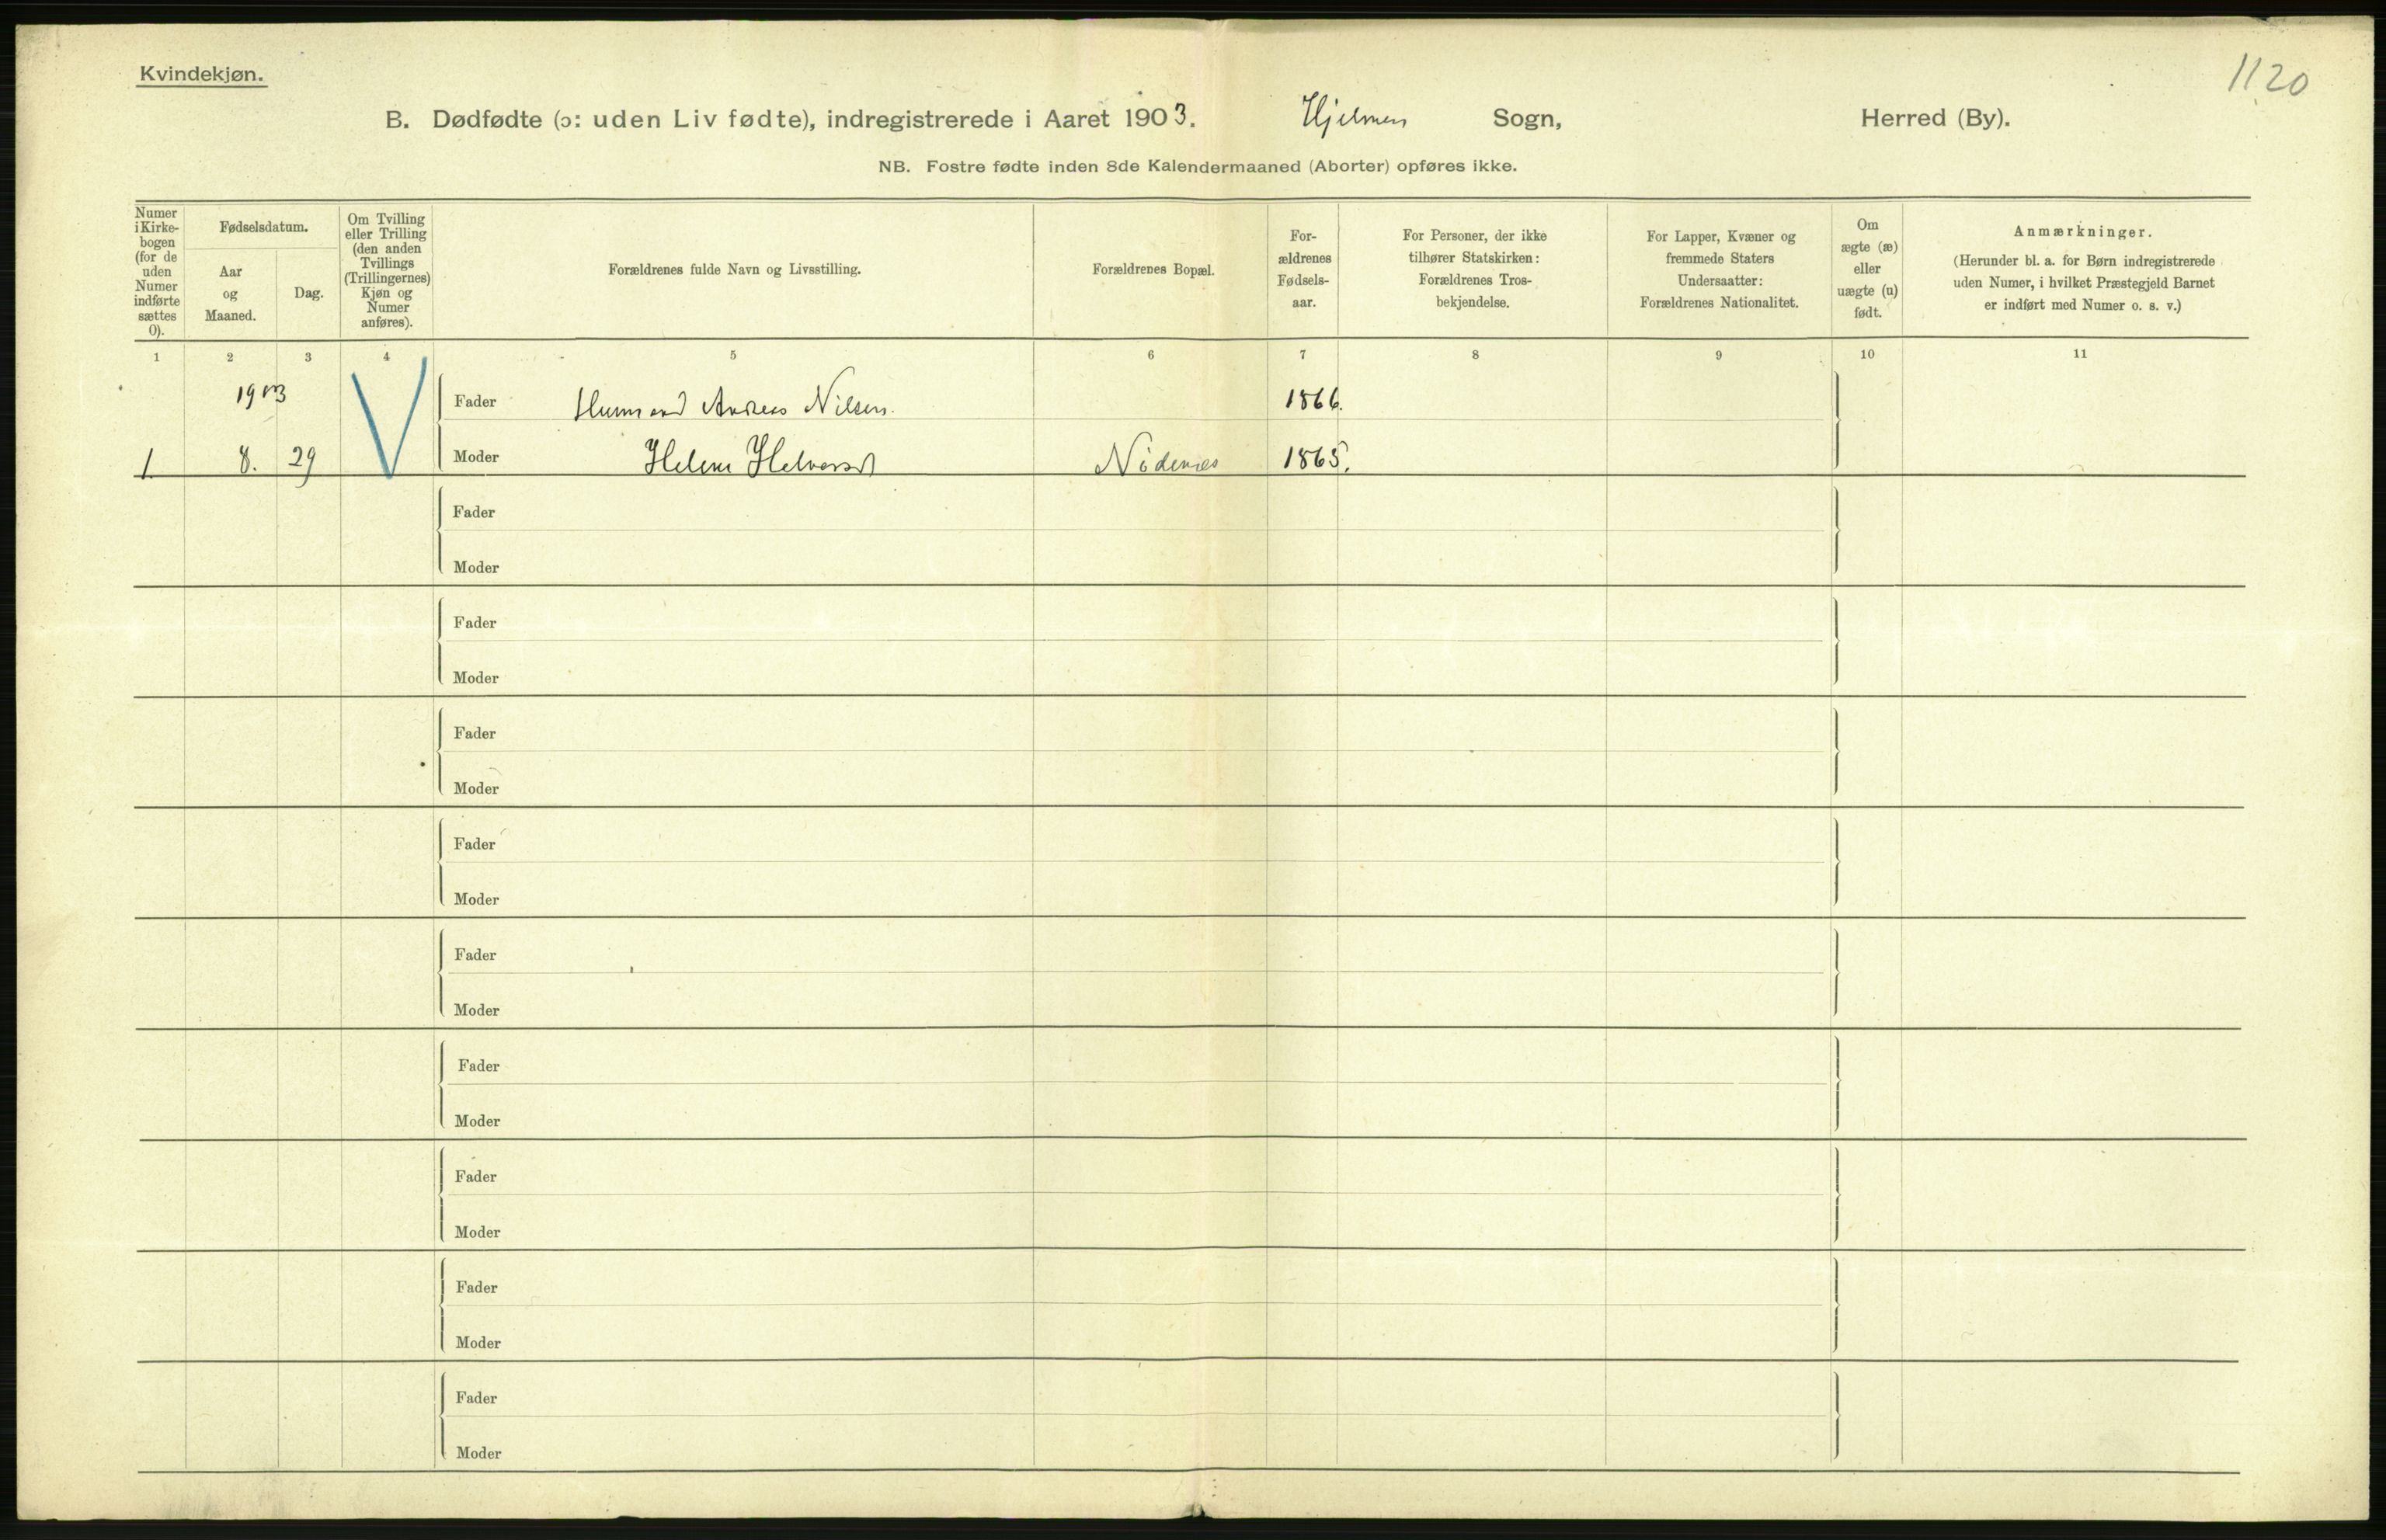 Kvindekjøn.
1120
B. Dødfødte (ɔ: uden Liv fødte), indregistrerede i Aaret 1903. Sogn, Herred (By).
NB. Fostre fødte inden 8de Kalendermaaned (Aborter) opføres ikke.
Numer i Kirke-bogen (for de uden Numer indførte sættes 0).
Fødselsdatum.
Aar og Maaned.
Dag.
Om Tvilling eller Trilling (den anden Tvillings (Trillingernes) Kjøn og Numer anføres).
Forældrenes fulde Navn og Livsstilling.
Forældrenes Bopæl.
For-ældrenes Fødsels-aar.
For Personer, der ikke tilhører Statskirken: Forældrenes Tros-bekjendelse.
For Lapper, Kvæner og fremmede Staters Undersaatter: Forældrenes Nationalitet.
Om ægte (æ) eller uægte (u) født.
Anmærkninger.
(Herunder bl. a. for Børn indregistrerede uden Numer, i hvilket Præstegjeld Barnet er indført med Numer o. s. v.)
1 2 3 4 5 6 7 8 9 10 11
1903 Fader Andreas Nilsen. 1866.
1 8. 29 Moder Helene 1865.
Fader
Moder
Fader
Moder
Fader
Moder
Fader
Moder
Fader
Moder
Fader
Moder
Fader
Moder
Fader
Moder
Fader
Moder